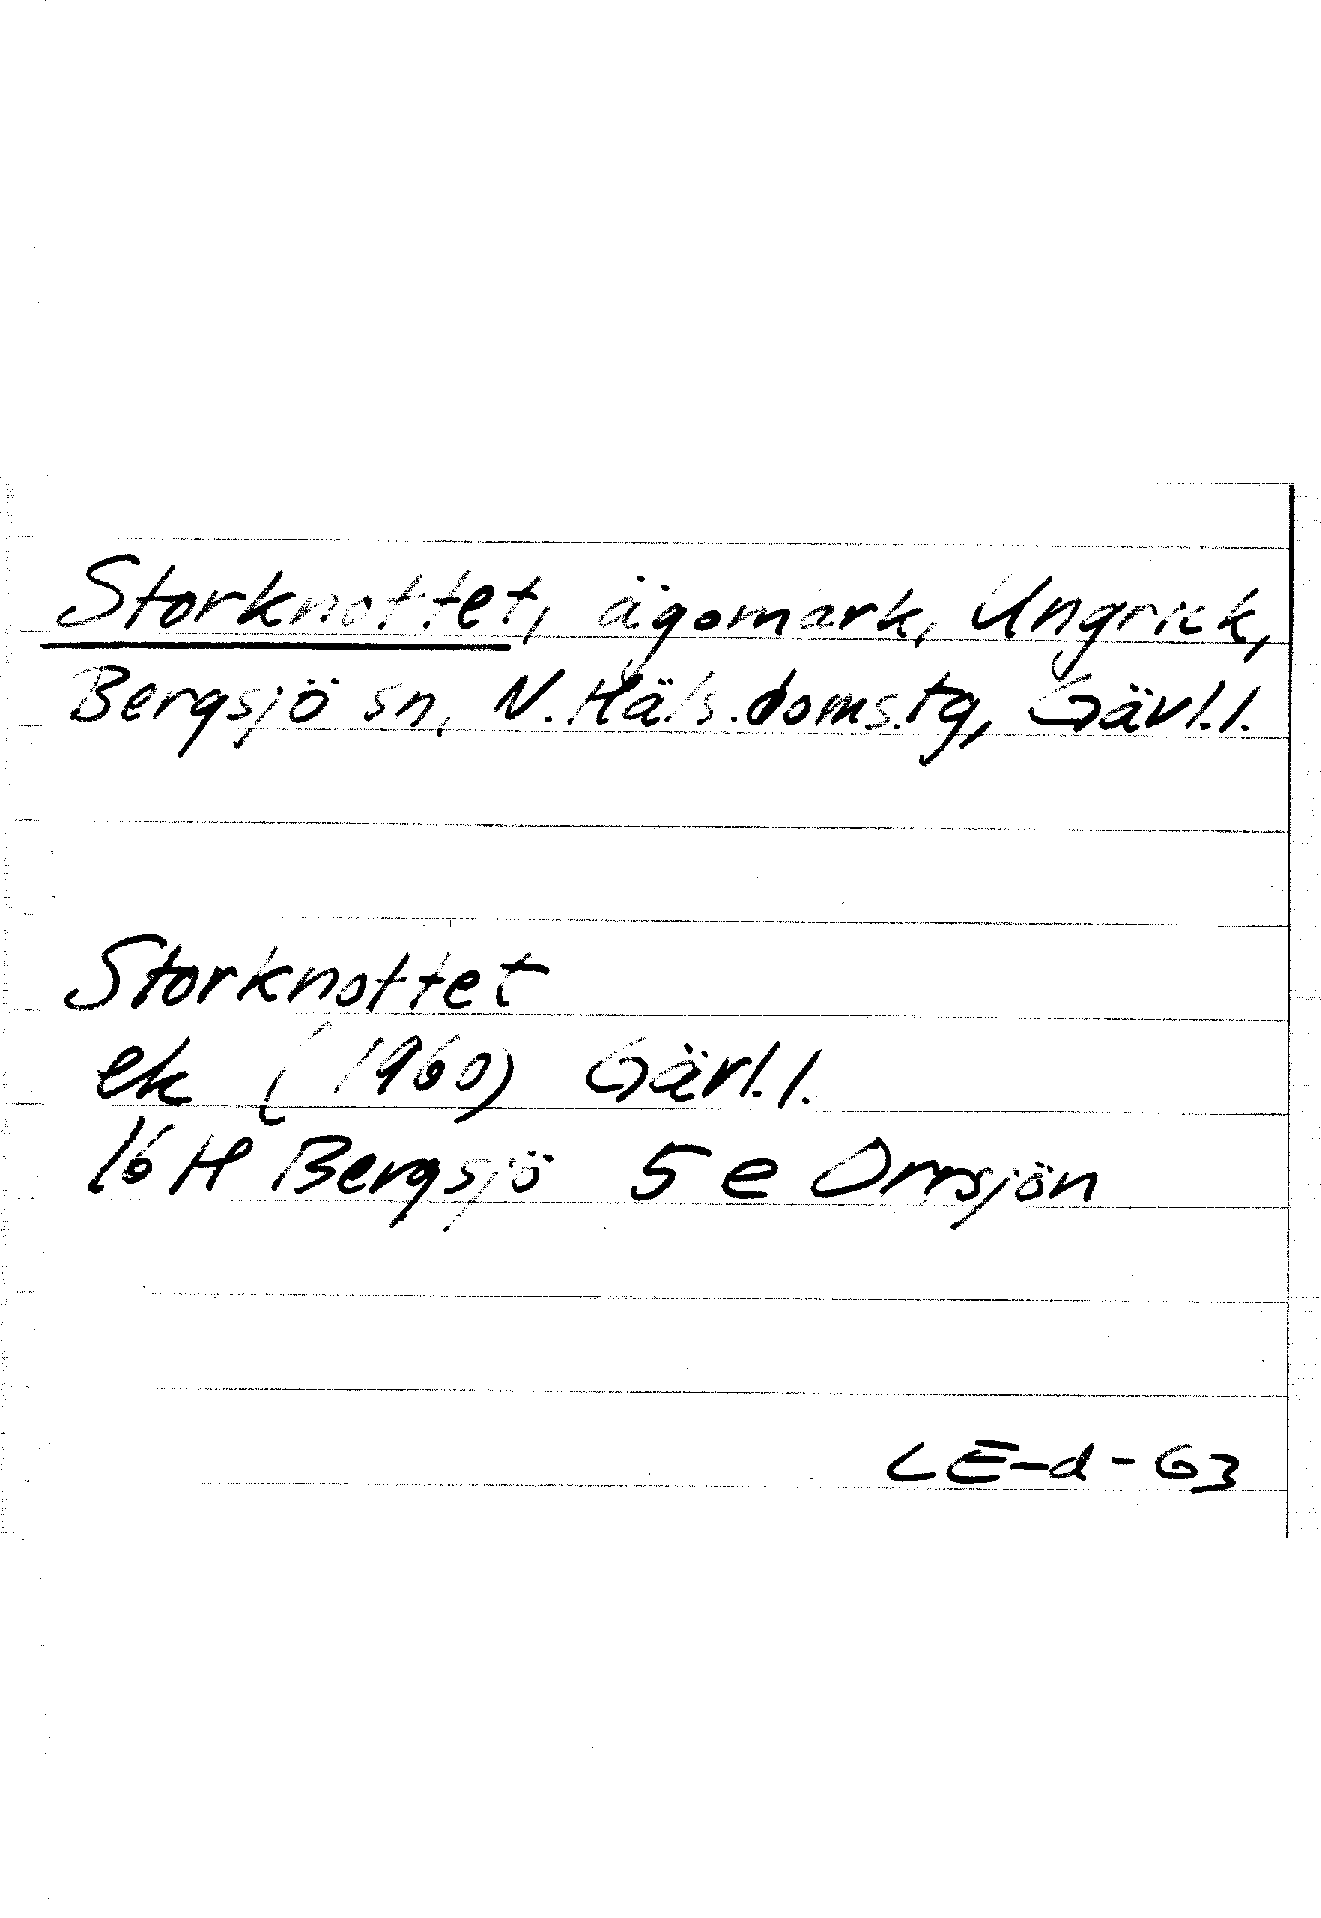 Storknottet, ägomark, Ungrick,
Bergsjö sn, N. Häls. doms.tg, Gävl.l.
Storknottet
ek (1960) Gävl.l.
16 H Bergsjö 5 e Orrsjön
LE-d-63